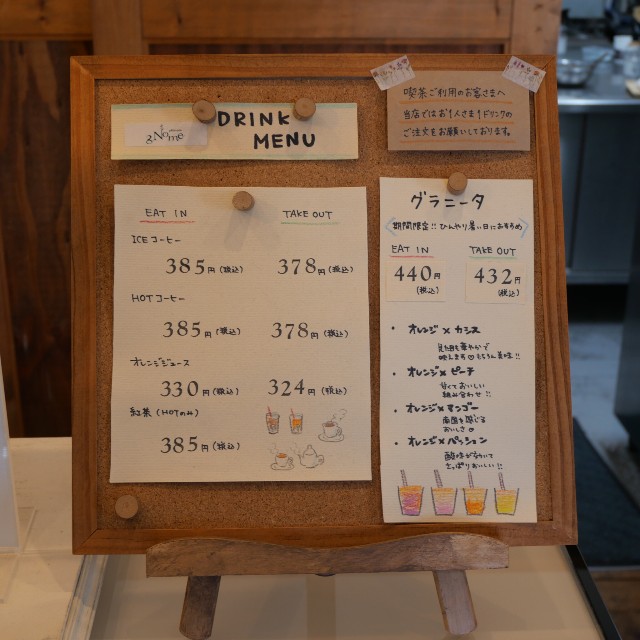 gNome
DRINK
MENU
喫茶ご利用のお客さまへ
当店ではお1人さま1ドリンクの
ご注文をお願いしております。
EAT IN
TAKE OUT
ICEコーヒー
385円(税込)
378円(税込)
HOTコーヒー
385円(税込)
378円(税込)
オレンジジュース
330円(税込)
324円(税込)
紅茶(HOTのみ)
385円(税込)
グラニータ
期間限定!!ひんやり暑い日におすすめ
EAT IN
TAKE OUT
440円
(税込)
432円
(税込)
・オレンジ×カシス
見た目も華やかで
映えます♡もちろん美味!!
・オレンジ×ピーチ
甘くておいしい
組み合わせ!!
・オレンジ×マンゴー
南国を感じる
おいしさ♡
・オレンジ×パッション
酸味がきいて
さっぱりおいしい!!